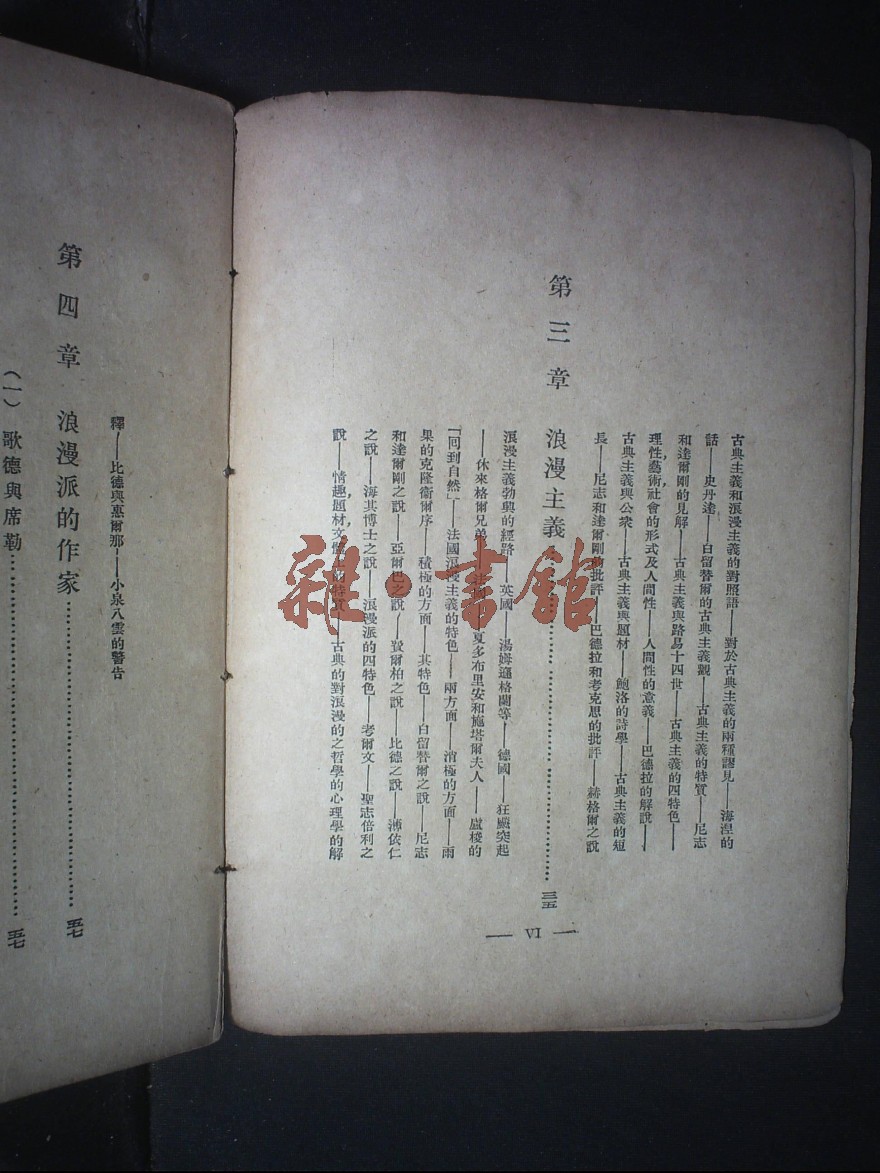 古典主義和浪漫主義的對照語——對於古典主義的兩種謬見——海涅的
話——史丹達——白留替爾的古典主義觀——古典主義的特質——尼志
和達爾剛的見解——古典主義與路易十四世——古典主義的四特色——
理性,藝術,社會的形式及人間性——人間性的意義——巴德拉的解說——
古典主義與公衆——古典主義與題材——鮑洛的詩學——古典主義的短
長——尼志和達爾剛的批評——巴德拉和考克思的批評——赫格爾之說
第三章 浪漫主義……三五
浪漫主義勃興的經路——英國——湯姆遜格蘭等——德國——狂飈突起
——休來格爾兄弟——法國——夏多布里安和施塔爾夫人——盧梭的
「回到自然」——法國浪漫主義的特色——兩方面——消極的方面——雨
果的克隆衞爾序——積極的方面——其特色——白留替爾之說——尼志
和達爾剛之說——亞爾巴之說——費爾柏之說——比德之說——沸依仁
之說——海其博士之說——浪漫派的四特色——考爾文——聖志倍利之
說——情趣,題材,文體上的特質——古典的對浪漫的之哲學的心理學的解
— VI —
釋——比德與惠爾那——小泉八雲的警告
第四章 浪漫派的作家……五七
(一) 歌德與席勒……五七
雜·書館